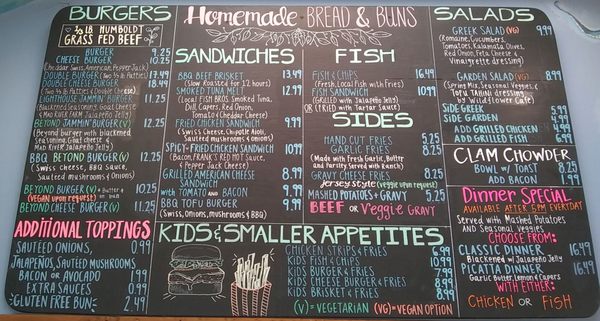 BURGERS
1/3 LB. HUMBOLDT
GRASS FED BEEF
BURGER 9.25
CHEESE BURGER 10.25
(Cheddar, Swiss, American, Pepper Jack)
DOUBLE BURGER (Two 1/3 lb Patties) 17.49
DOUBLE CHEESE BURGER 18.49
(Two 1/3 lb Patties & Double Cheese)
LIGHTHOUSE JAMMIN' BURGER 11.25
(Blackened Seasoning, Goat Cheese &
MAD RIVER FARM Jalapeño Jelly)
BEYOND JAMMIN' BURGER (V) 12.25
(Beyond burger with blackened
Seasoning, Goat Cheese &
Mad River Jalapeño Jelly)
BBQ BEYOND BURGER (V) 12.25
(Swiss Cheese, BBQ Sauce,
Sauteed mushrooms & Onions)
BEYOND BURGER (V) + Butter on Bun 10.25
(VEGAN upon request)
BEYOND CHEESE BURGER (V) 11.25
ADDITIONAL TOPPINGS
SAUTEED ONIONS, 0.99
JALAPEÑOS, SAUTEED MUSHROOMS
BACON OR AVOCADO 1.99
EXTRA SAUCES 0.99
GLUTEN FREE BUN 2.49
Homemade BREAD & BUNS
SANDWICHES
BBQ BEEF BRISKET 13.49
(Slow Roasted for 12 hours)
SMOKED TUNA MELT 12.99
(Local FISH BROS. Smoked Tuna,
Dill Capers, Red Onion,
Tomato & Cheddar Cheese)
FRIED CHICKEN SANDWICH 9.99
(Swiss Cheese, Chipotle Aioli,
Sauteed mushrooms and onions)
SPICY-FRIED CHICKEN SANDWICH 10.99
(Bacon, FRANK'S RED HOT Sauce,
& Pepper Jack Cheese)
GRILLED AMERICAN CHEESE 8.99
SANDWICH
WITH TOMATO AND BACON 9.99
BBQ TOFU BURGER 9.99
(Swiss, Onions, mushrooms & BBQ)
FISH
FISH & CHIPS 16.49
(Fresh, Local Fish with Fries)
FISH SANDWICH 10.99
(GRILLED with Jalapeño Jelly)
OR (FRIED with Tartar Sauce)
SIDES
HAND CUT FRIES 5.25
GARLIC FRIES 8.25
(Made with Fresh Garlic, Butter
and Parsley. Served with Ranch)
GRAVY CHEESE FRIES 8.25
Jersey Style (vegan upon request)
MASHED POTATOES + GRAVY 5.25
BEEF OR Veggie GRAVY
KIDS & SMALLER APPETITES
CHICKEN STRIPS & FRIES 6.99
KIDS FISH & CHIPS 10.99
KIDS BURGER & FRIES 7.99
KIDS CHEESE BURGER & FRIES 8.99
KIDS BRISKET & FRIES 8.99
(V)=VEGETARIAN (VG)=VEGAN OPTION
SALADS
GREEK SALAD (VG) 9.99
(Romaine, Cucumbers,
Tomatoes, Kalamata Olives,
Red Onion, Feta Cheese &
Vinaigrette dressing)
GARDEN SALAD (VG) 8.99
(Spring Mix, Seasonal Veggies &
LEMON TAHINI DRESSING
by Wildflower Cafe)
SIDE GREEK 5.99
SIDE GARDEN 4.99
ADD GRILLED CHICKEN 4.99
ADD GRILLED FISH 9.99
CLAM CHOWDER
BOWL W/ TOAST 8.25
ADD BACON 1.99
Dinner SPECIAL
AVAILABLE AFTER 5PM EVERYDAY
Served with Mashed Potatoes
AND Seasonal Veggies
CHOOSE FROM:
CLASSIC DINNER 16.49
Blackened w/ Jalapeño Jelly
PICATTA DINNER 16.49
Garlic Butter, Lemon & Capers
WITH EITHER:
CHICKEN OR FISH